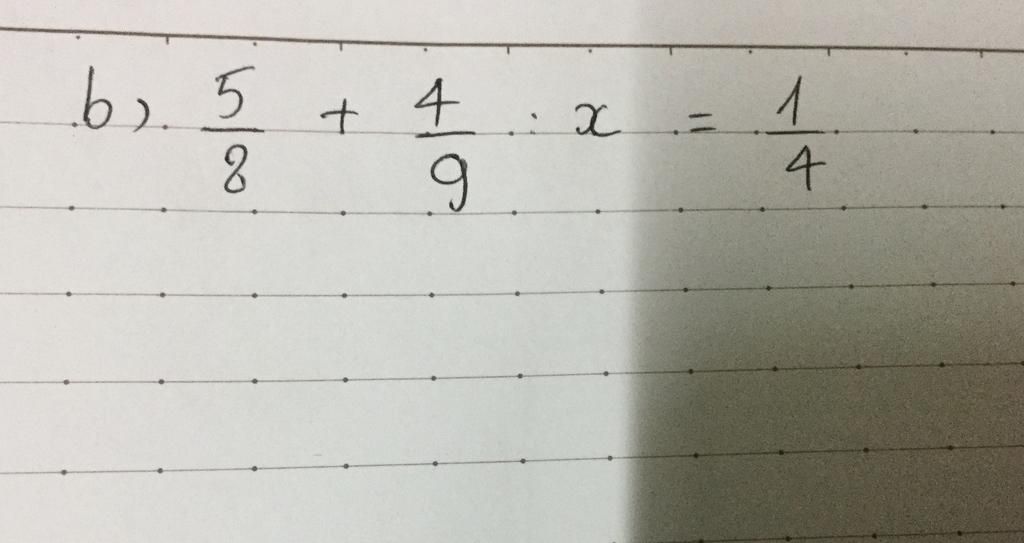 b) 5/8 + 4/9 : x = 1/4